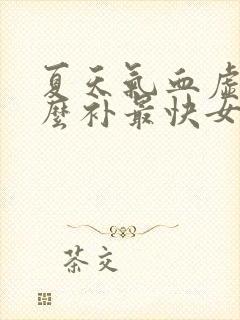 夏天氣血虛
麼补最快女
茶文